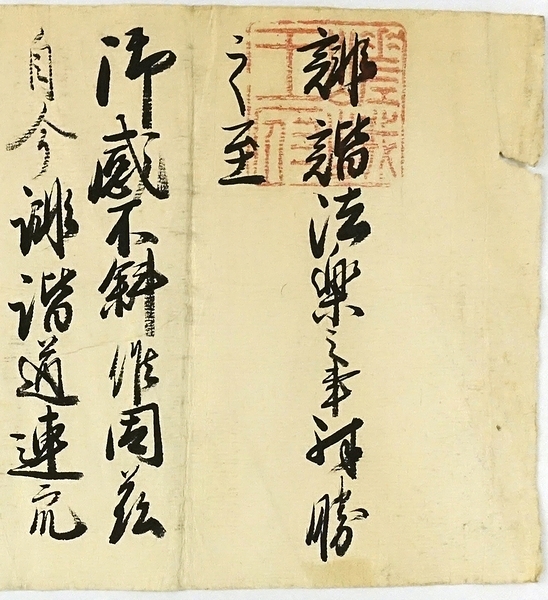 誹諧法楽之事殊勝
之至
御感不斜候因茲
自今誹諧道連